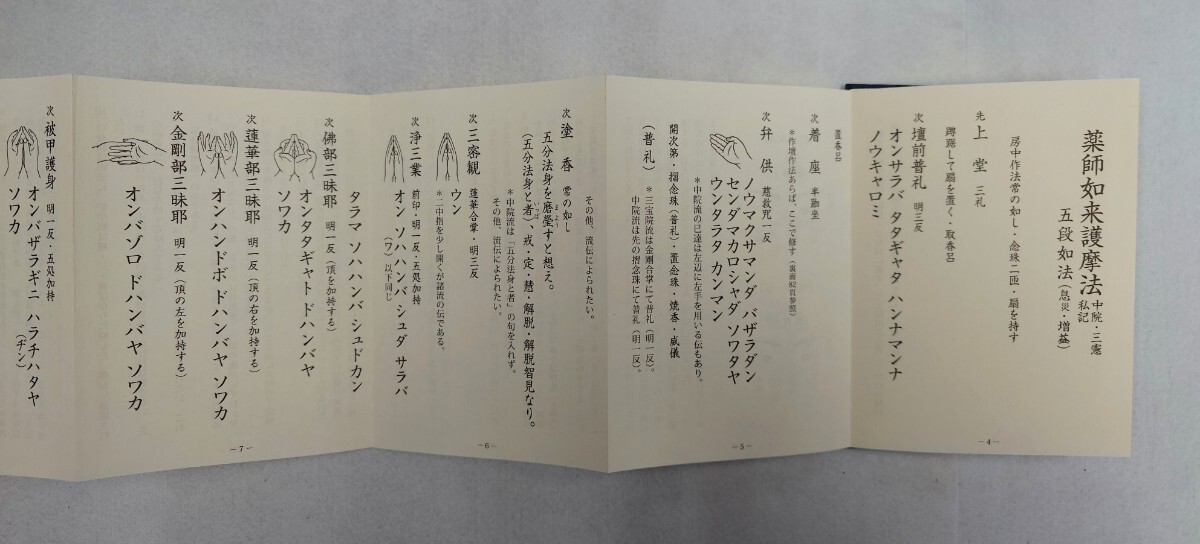 薬師如来護摩法 中院・三憲 私記
五段如法(息災・増益)
房中作法常の如し・念珠二匝・扇を持す
先 上堂 三礼
蹲踞して扇を置く・取香呂
次 壇前普礼 明三反
オンサラバ タタギャタ ハンナマンナ
ノウキャロミ
−4−
置香呂
次 着座 半跏座
*作壇作法あらば、ここで修す(裏面62頁参照)
次 弁供 慈救咒一反
ノウマクサマンダ バザラダン
センダマカロシャダ ソワタヤ
ウンタラタ カンマン
*中院流の已達は左辺に左手を用いる伝もあり。
開次第・摺念珠(普礼)・置念珠・焼香・威儀
(普礼) *三宝院流は金剛合掌にて普礼(明一反)。
中院流は先の摺念珠にて普礼(明一反)。
−5−
その他、流伝によられたい。
次 塗香 常の如し
五分法身を磨瑩すと想え。
(五分法身と者)、戒・定・慧・解脱・解脱智見なり。
*中院流は「五分法身と者」の句を入れず。
その他、流伝によられたい。
次 三密観 蓮華合掌・明三反
ウン
*二中指を少し開くが諸流の伝である。
次 浄三業 前印・明一反・五処加持
オン ソハハンバ シュダ サラバ
(ワ)以下同じ
−6−
タラマ ソハハンバ シュドカン
次 佛部三昧耶 明一反(頂を加持する)
オンタタギャト ドハンバヤ
ソワカ
次 蓮華部三昧耶 明一反(頂の右を加持する)
オンハンドボ ドハンバヤ ソワカ
次 金剛部三昧耶 明一反(頂の左を加持する)
オンバゾロ ドハンバヤ ソワカ
−7−
次 被甲護身 明一反・五処加持
オンバザラギニ ハラチハタヤ
(ヂン)
ソワカ